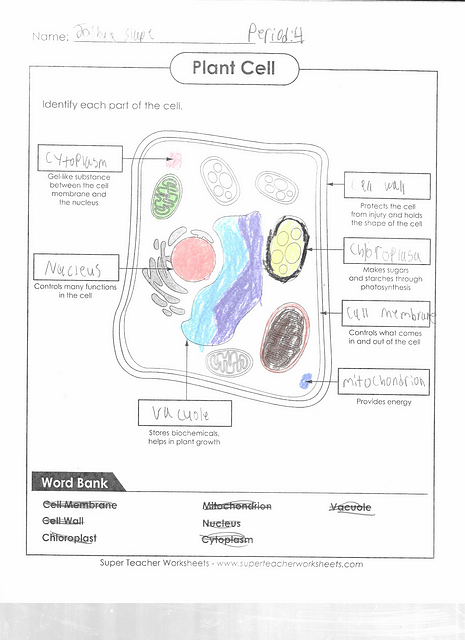 Name: Period: 4
Plant Cell
Identify each part of the cell.
Cytoplasm
Gel-like substance
between the cell
membrane and
the nucleus
Cell wall
Protects the cell
from injury and holds
the shape of the cell
Chloroplast
Makes sugars
and starches through
photosynthesis
Nucleus
Controls many functions
in the cell
Cell membrane
Controls what comes
in and out of the cell
mitochondrion
Provides energy
Vacuole
Stores biochemicals,
helps in plant growth
Word Bank
Cell Membrane Mitochondrion Vacuole
Cell Wall Nucleus
Chloroplast Cytoplasm
Super Teacher Worksheets - www.superteacherworksheets.com